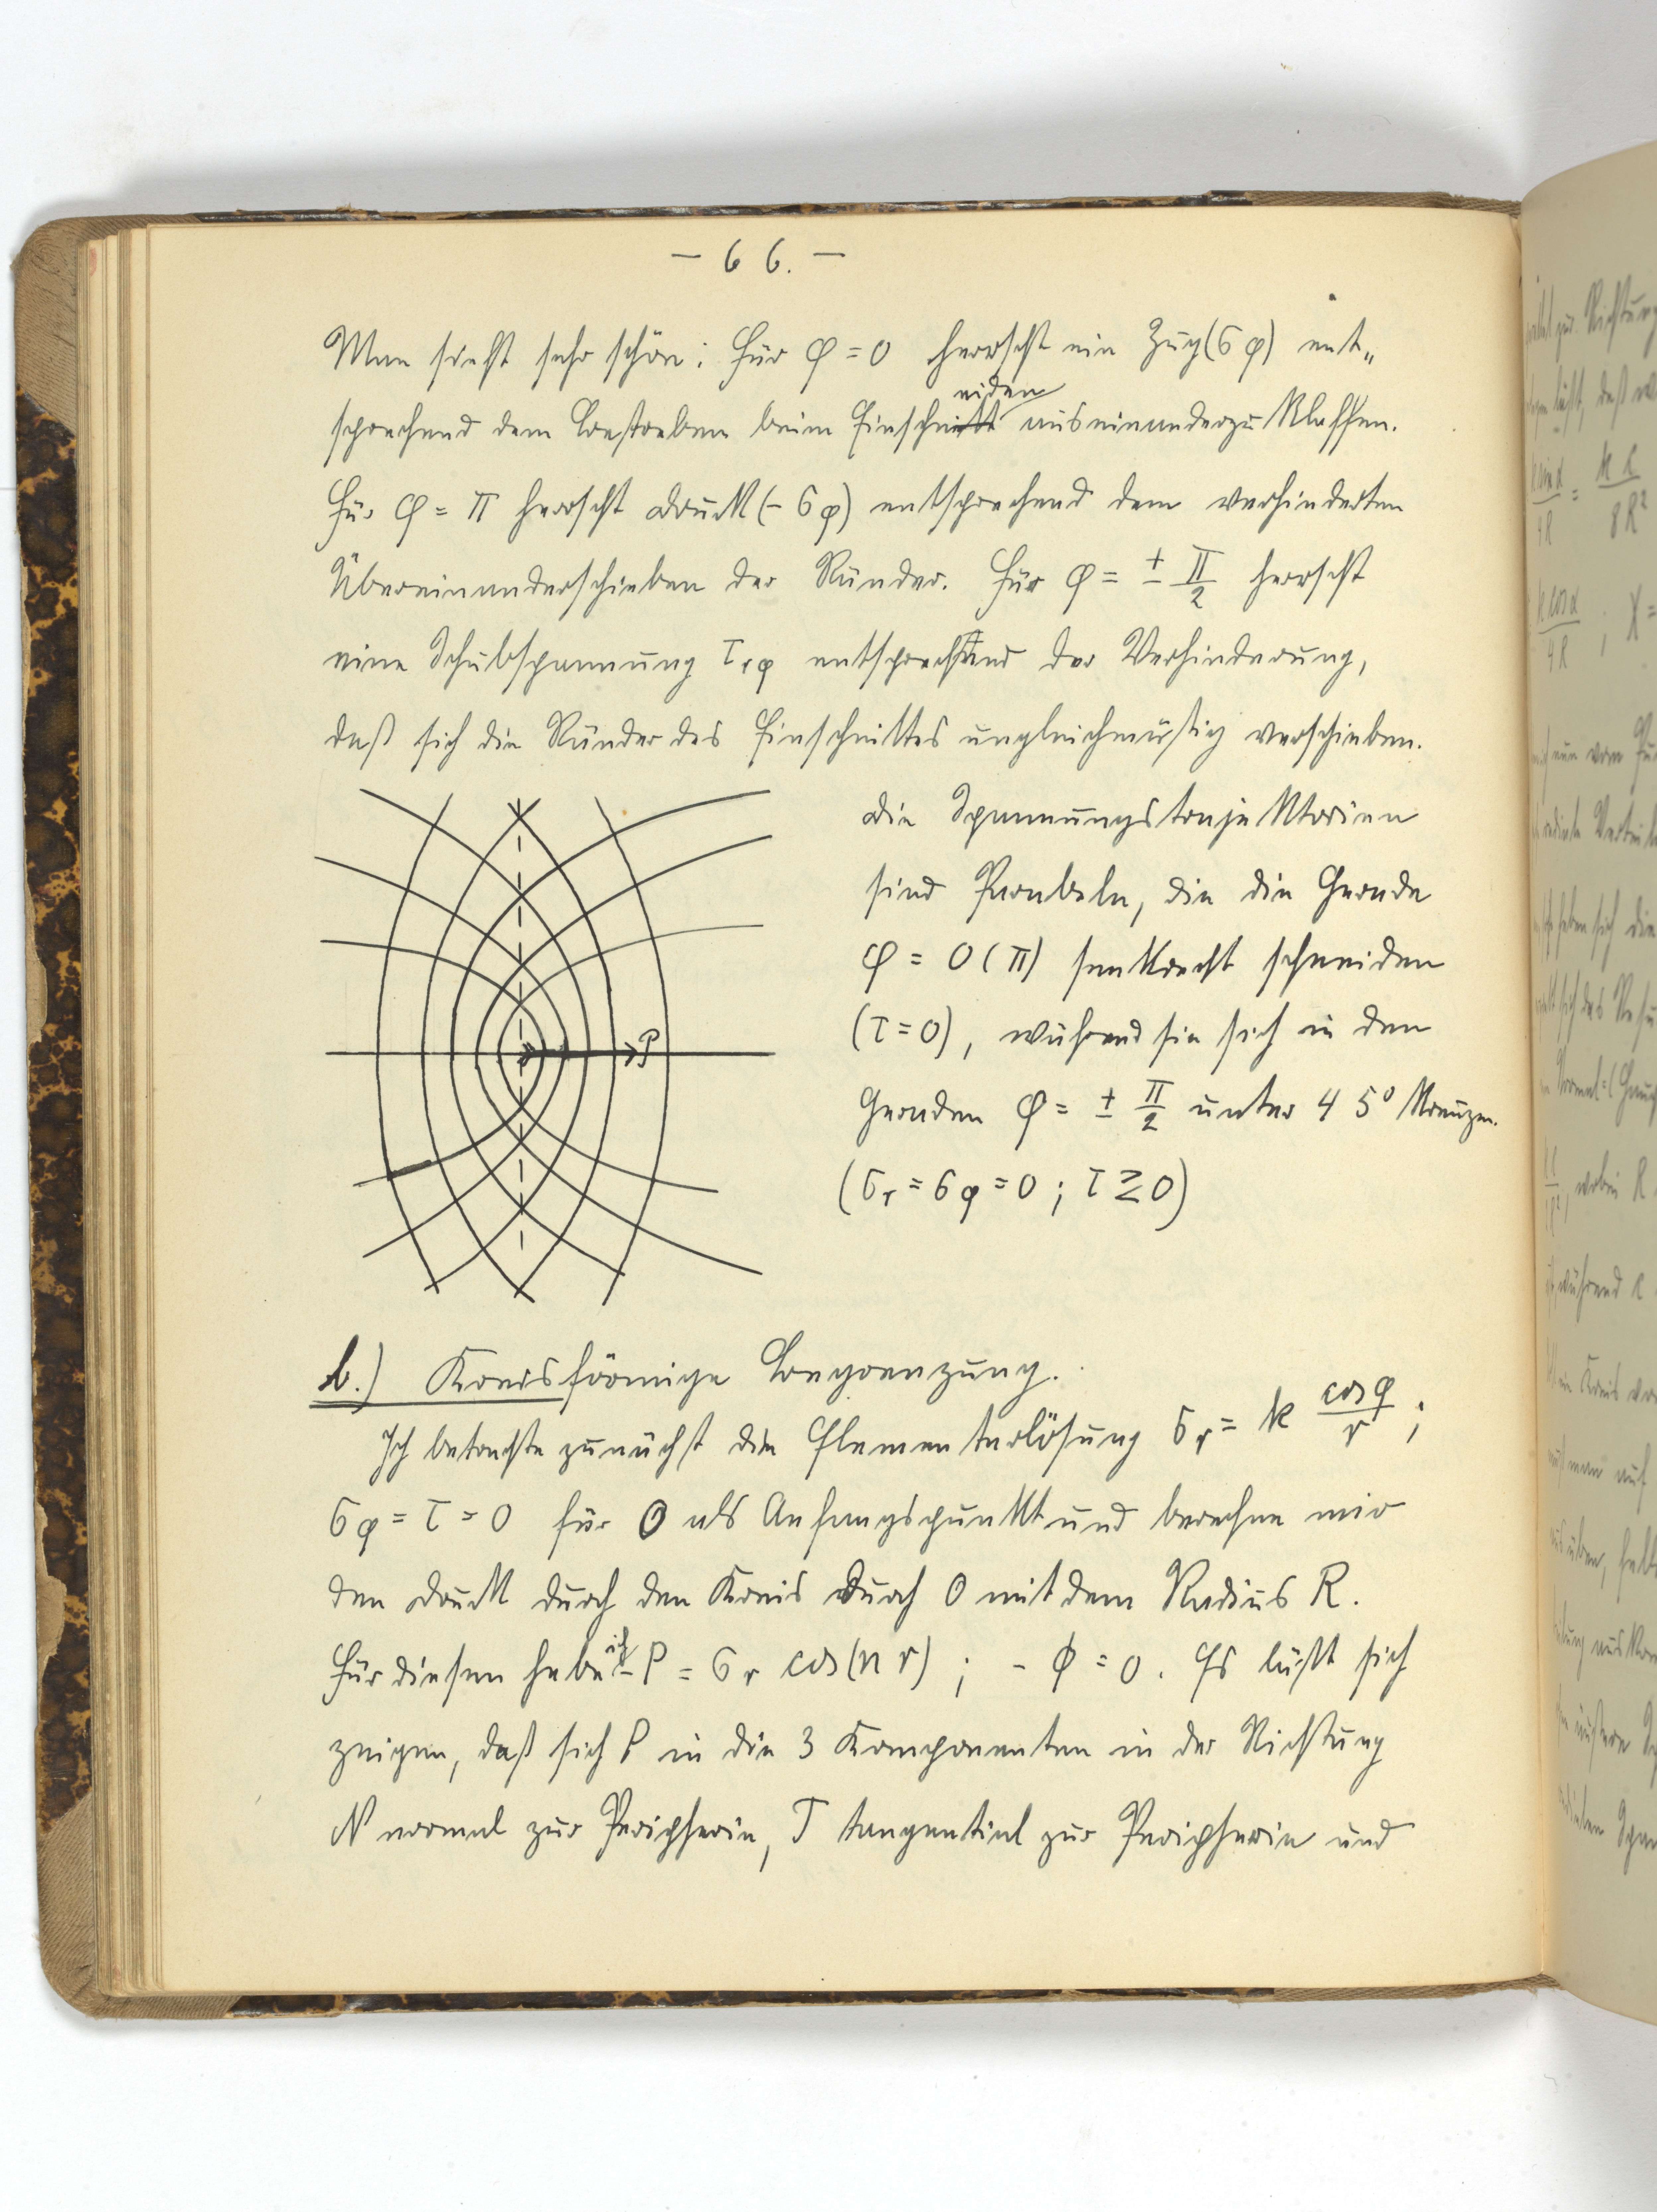 — 66. —
Man sieht sehr schön: Für φ = 0 herrscht ein Zug (σφ) ent„
sprechend dem Bestreben beim Einschneiden auseinanderzuklaffen.
Für φ = π herrscht Druck (- σφ) entsprechend dem verhinderten
Übereinanderschieben der Ränder. Für φ = ± π/2 herrscht
eine Schubspannung τrφ entsprechend der Verhinderung,
daß sich die Ränder des Einschnittes ungleichmäßig verschieben.
Die Spannungstrajektorien
sind Parabeln, die die Gerade
φ = 0 (π) senkrecht schneiden
(τ = 0), während sie sich in den
Geraden φ = ± π/2 unter 45° kreuzen.
(σr = σφ = 0 ; τ ≷ 0)
P
b.) Kreisförmige Begrenzung.
Ich betrachte zunächst die Elementarlösung σr = k cosφ/r ;
σφ = τ = 0 für O als Anfangspunkt und berechne mir
den Druck durch den Kreis durch O mit dem Radius R.
Für diesen habe ich - P = σr cos(n r) ; - Φ = 0. Es läßt sich
zeigen, daß sich P in die 3 Komponenten in der Richtung
N normal zur Peripherie, T tangential zur Peripherie und